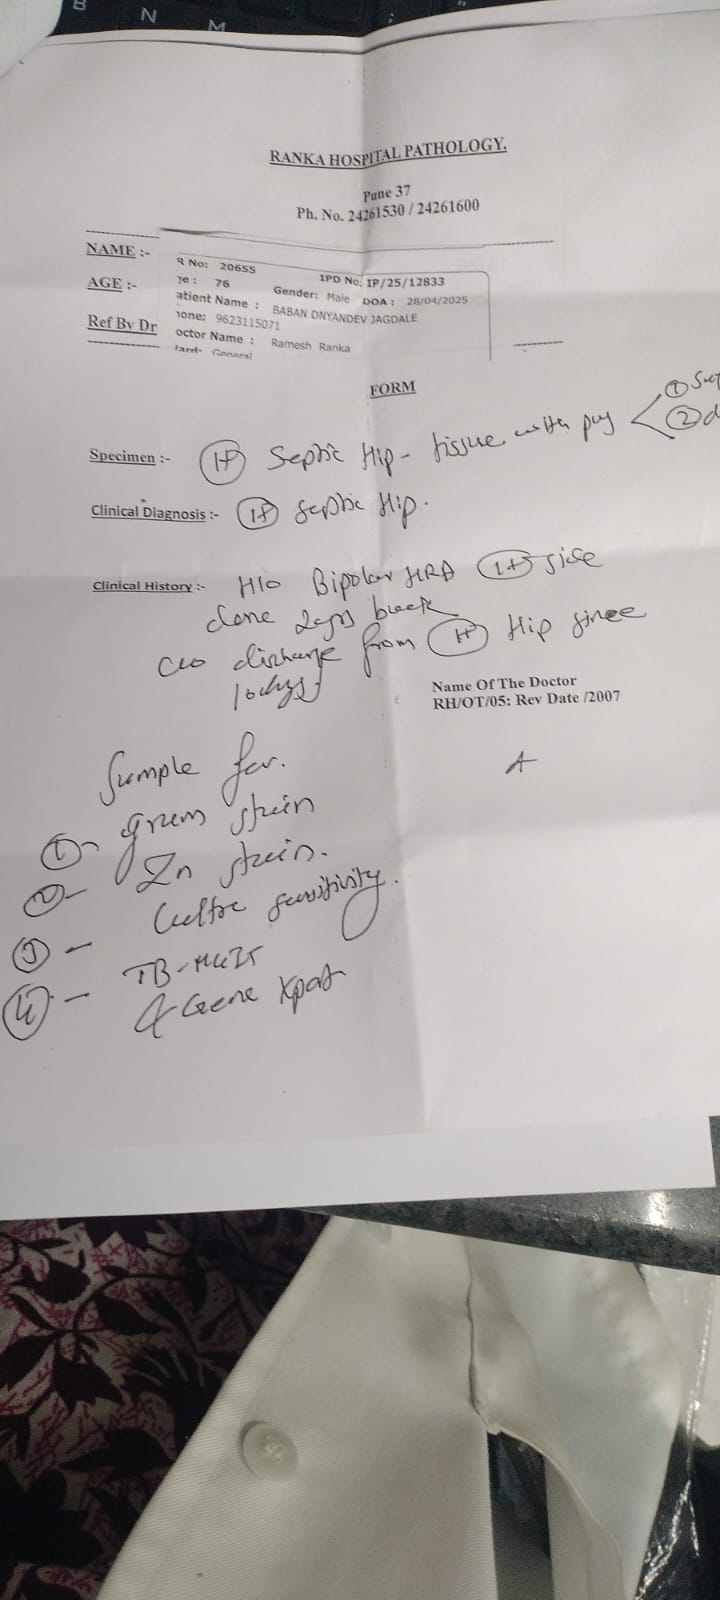 B N M ;
RANKA HOSPITAL PATHOLOGY.
Pune 37
Ph. No. 24261530 / 24261600
NAME :-
R No: 20655 IPD No: IP/25/12833
AGE :- ge : 76 Gender: Male DOA : 28/04/2025
atient Name : BABAN DNYANDEV JAGDALE
hone: 9623115071
Ref By Dr octor Name : Ramesh Ranka
ard: General
FORM
Specimen :- Lt Septic Hip - tissue with pus ①
②
Clinical Diagnosis :- Lt Septic Hip.
Clinical History :- H/o Bipolar HRA Lt side
done 2 yrs back
c/o discharge from Lt Hip since
10 days
Name Of The Doctor
RH/OT/05: Rev Date /2007
Sample for.
①- gram stain
②- Zn stain.
③ - Culture sensitivity.
④ - TB-MGIT
& Gene Xpart